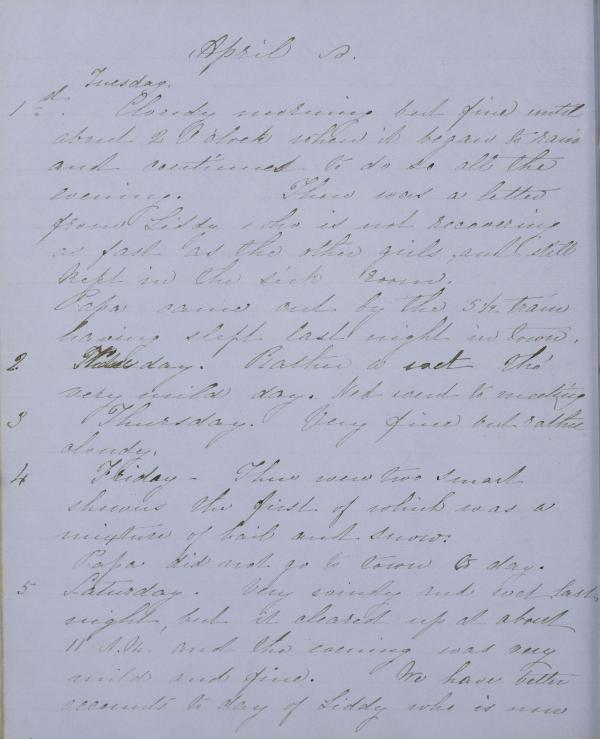 April
Tuesday.
1 Cloudy morning but fine until
about 2 O'clock when it began to rain
and continued to do so all the
evening. There was a letter
from Liddy who is not recovering
as fast as the other girls and still
kept in the sick room.
Papa came out by the 5½ train
having slept last night in town.
2 day. Rather a wet tho'
very mild day. Ned went to meeting
3 Thursday. Very fine but rather
cloudy.
4 Friday - There were two smart
showers the first of which was a
mixture of hail and snow.
Papa did not go to town to day.
5 Saturday. Very windy and wet last
night, but it cleared up at about
11 A.M. and the evening was very
mild and fine. We have better
accounts to day of Liddy who is now